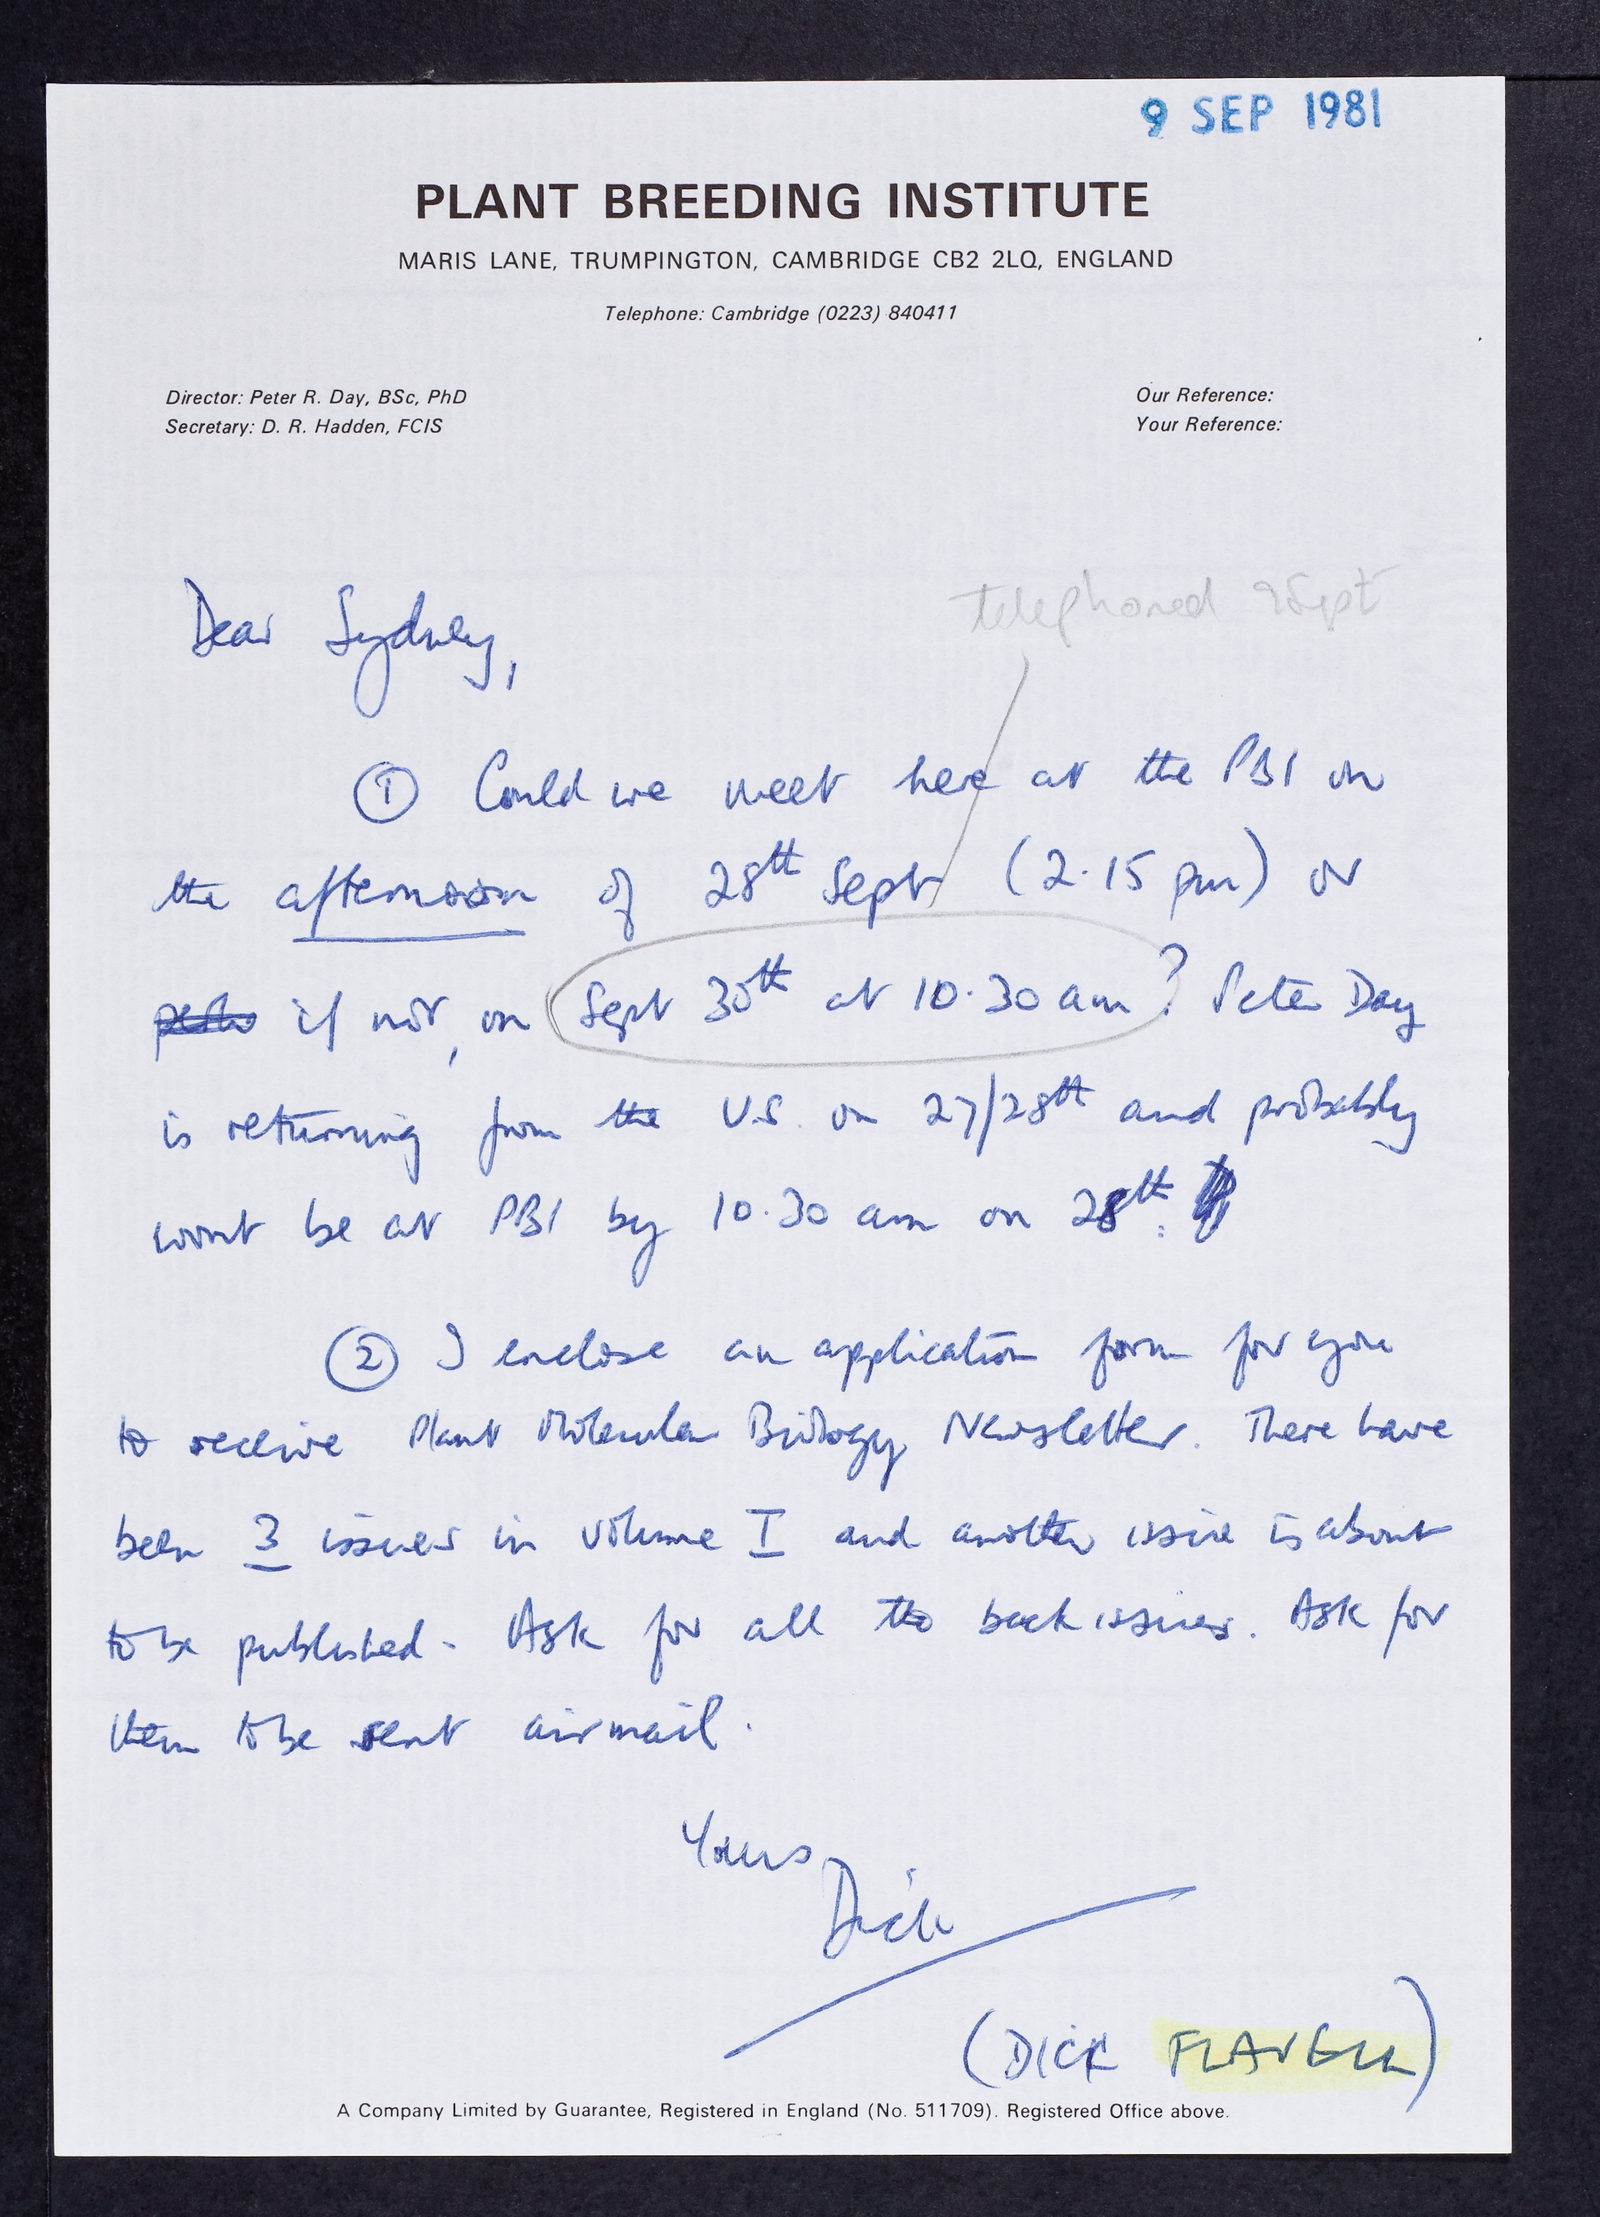 9 SEP 1981
PLANT BREEDING INSTITUTE
MARIS LANE, TRUMPINGTON, CAMBRIDGE CB2 2LQ, ENGLAND
Telephone: Cambridge (0223) 840411
Director: Peter R. Day, BSc, PhD
Secretary: D. R. Hadden, FCIS
Our Reference:
Your Reference:
telephoned 9 Sept
Dear Sydney,
① Could we meet here at the PBI on
the afternoon of 28th Sept (2.15 pm) or
if not, on Sept 30th at 10.30 am? Peter Day
is returning from the U.S. on 27/28th and probably
wont be at PBI by 10.30 am on 28th.
② I enclose an application form for you
to receive Plant Molecular Biology Newsletter. There have
been 3 issues in volume I and another issue is about
to be published. Ask for all the back issues. Ask for
them to be sent airmail.
Yours
Dick
(DICK FLAVELL)
A Company Limited by Guarantee, Registered in England (No. 511709). Registered Office above.